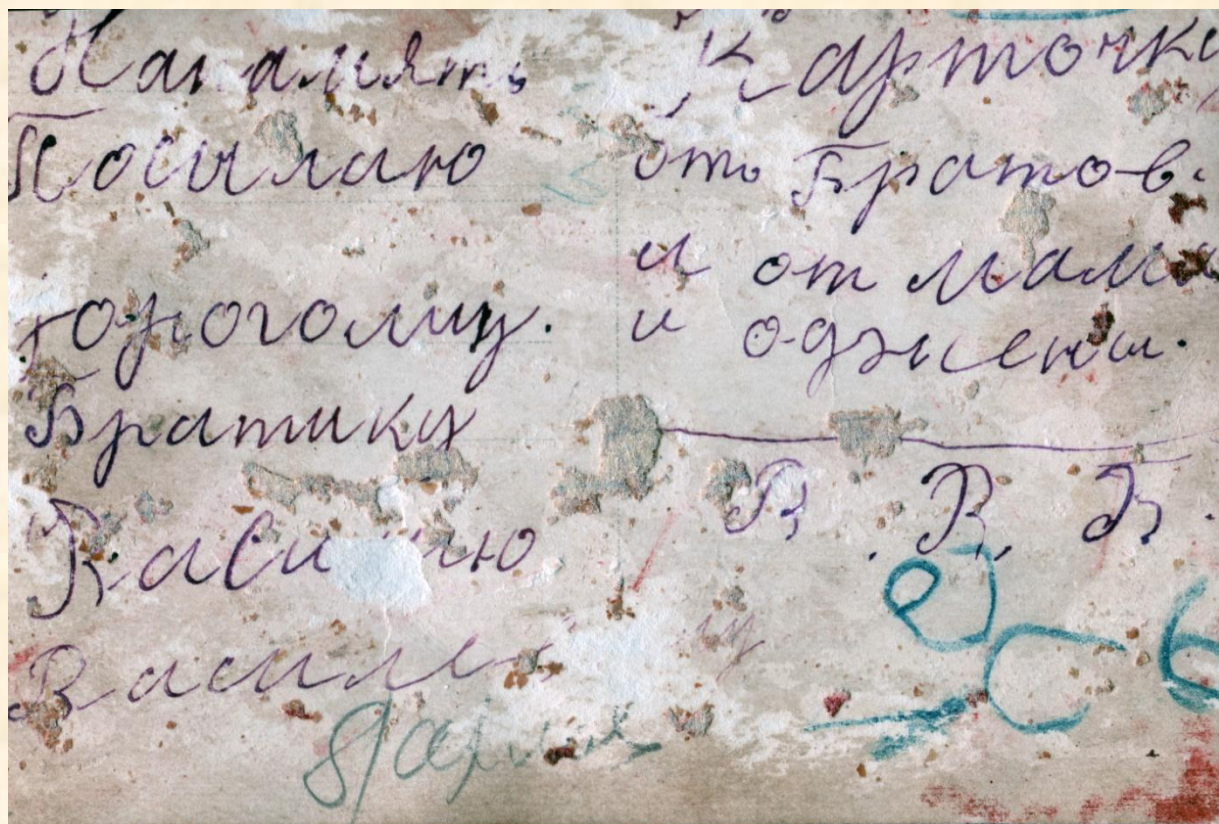 Напамять
Посылаю
дорогому.
Братику
Карточку
отъ Братов.
и от мамы
и оджени.
В. В. Б.